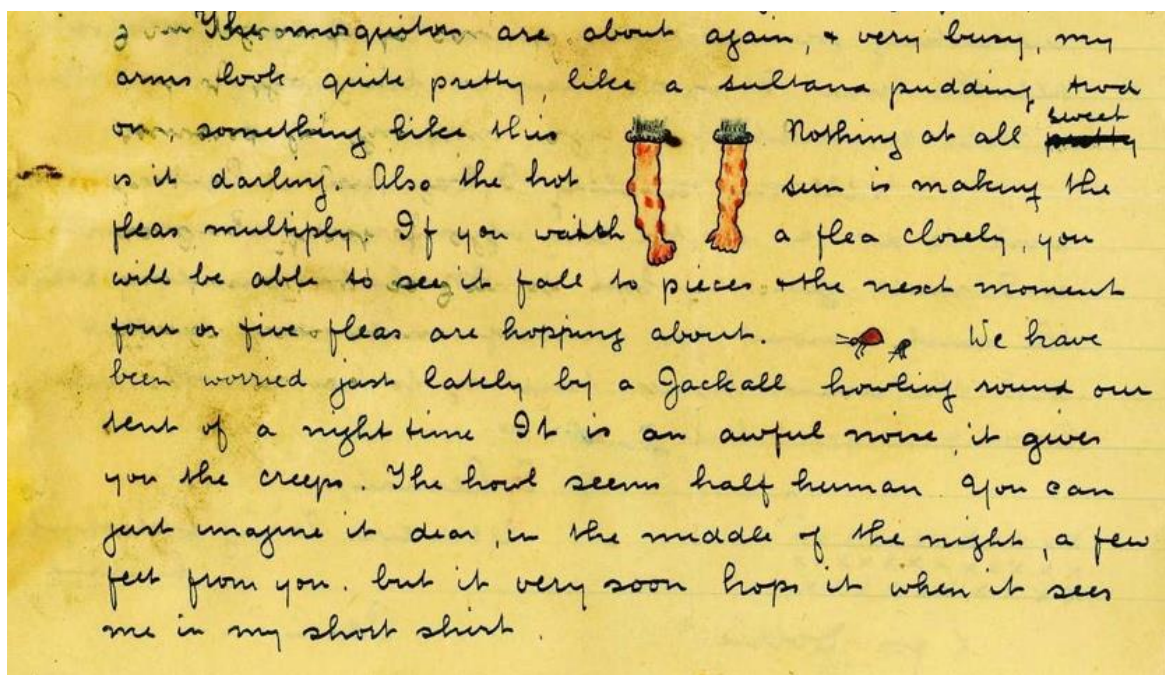 The mosquitos are about again, & very busy, my
arms look quite pretty, like a sultana pudding trod
on, something like this Nothing at all sweet pretty
is it darling. Also the hot sun is making the
fleas multiply. If you watch a flea closely, you
will be able to see it fall to pieces & the next moment
four or five fleas are hopping about. We have
been worried just lately by a Jackall howling round our
tent of a night time It is an awful noise, it gives
you the creeps. The howl seems half human. You can
just imagine it dear, in the middle of the night, a few
feet from you. but it very soon hops it when it sees
me in my short shirt.